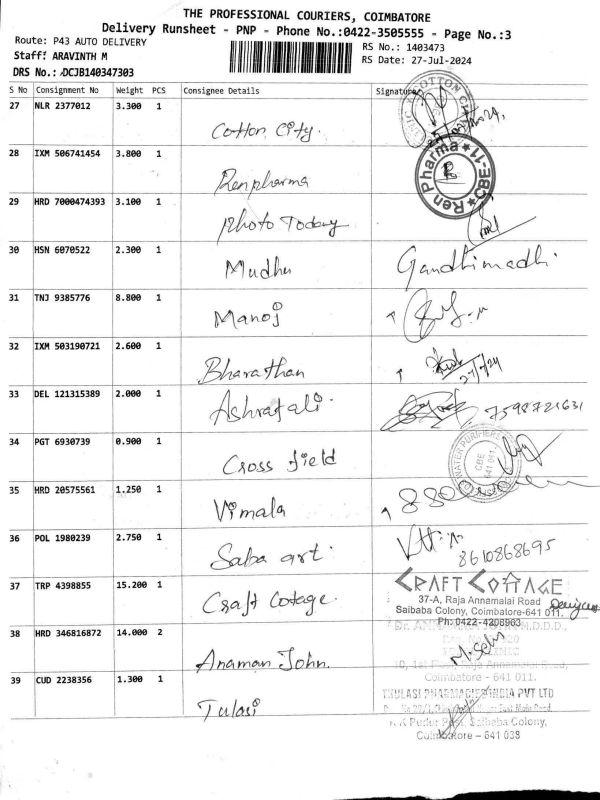 THE PROFESSIONAL COURIERS, COIMBATORE
Delivery Runsheet - PNP - Phone No.:0422-3505555 - Page No.:3
Route: P43 AUTO DELIVERY
RS No.: 1403473
Staff: ARAVINTH M
RS Date: 27-Jul-2024
DRS No.: DCJB140347303
S No Consignment No Weight PCS Consignee Details Signature
27 NLR 2377012 3.300 1 Cotton City.
28 IXM 506741454 3.800 1 Renpharma
Ren Pharma ★ CBE-11 ★
29 HRD 7000474393 3.100 1 Photo Today
30 HSN 6070522 2.300 1 Mudhu Gandhimadhi
31 TNJ 9385776 8.800 1 Manoj
32 IXM 503190721 2.600 1 Bharathan
27/7/24
33 DEL 121315389 2.000 1 Ashrafali. 7598721631
34 PGT 6930739 0.900 1 Cross field
WATER PURIFIERS
CBE
641 011
35 HRD 20575561 1.250 1 Vimala
36 POL 1980239 2.750 1 Saba art.
8610868695
37 TRP 4398855 15.200 1 Craft Cotage.
CRAFT COTTAGE
37-A, Raja Annamalai Road
Saibaba Colony, Coimbatore-641 011.
Ph: 0422-4208963
38 HRD 346816872 14.000 2 Anaman John.
M. Selvi
Coimbatore - 641 011.
39 CUD 2238356 1.300 1 Tulasi
THULASI PHARMACIES INDIA PVT LTD
K K Pudur Post, Saibaba Colony,
Coimbatore - 641 038